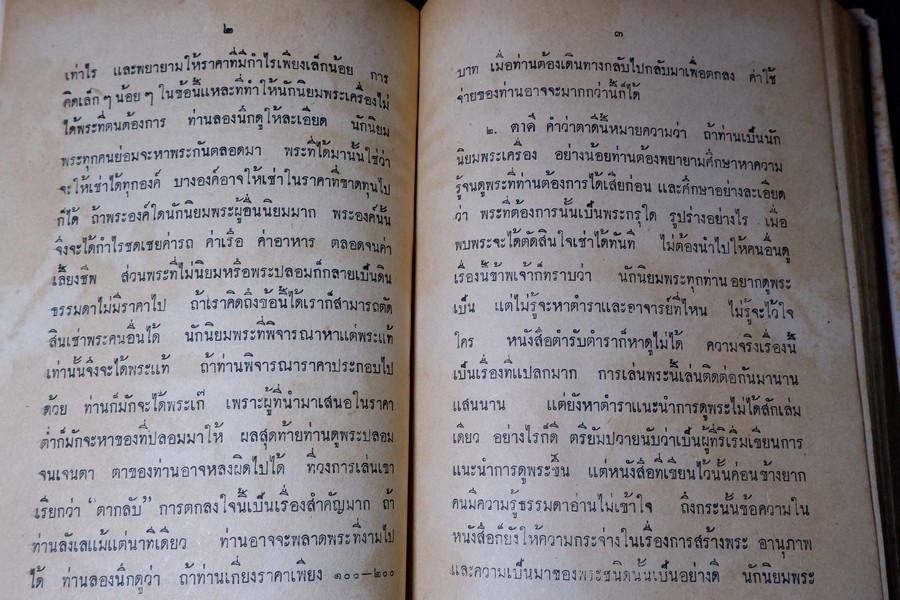 ๒
เท่าไร และพยายามให้ราคาที่มีกำไรเพียงเล็กน้อย การ
คิดเล็ก ๆ น้อย ๆ ในข้อนี้แหละที่ทำให้นักนิยมพระเครื่องไม่
ได้พระที่ตนต้องการ ท่านลองนึกดูให้ละเอียด นักนิยม
พระทุกคนย่อมจะหาพระกันตลอดมา พระที่ได้มานั้นใช่ว่า
จะให้เช่าได้ทุกองค์ บางองค์อาจให้เช่าในราคาที่ขาดทุนไป
ก็ได้ ถ้าพระองค์ใดนักนิยมพระผู้อื่นนิยมมาก พระองค์นั้น
จึงจะได้กำไรชดเชยค่ารถ ค่าเรือ ค่าอาหาร ตลอดจนค่า
เลี้ยงชีพ ส่วนพระที่ไม่นิยมหรือพระปลอมก็กลายเป็นดิน
ธรรมดาไม่มีราคาไป ถ้าเราคิดถึงข้อนี้ได้เราก็สามารถตัด
สินเช่าพระคนอื่นได้ นักนิยมพระที่พิจารณาหาแต่พระแท้
เท่านั้นจึงจะได้พระแท้ ถ้าท่านพิจารณาราคาประกอบไป
ด้วย ท่านก็มักจะได้พระเก๊ เพราะผู้ที่นำมาเสนอในราคา
ต่ำก็มักจะหาของที่ปลอมมาให้ ผลสุดท้ายท่านดูพระปลอม
จนเจนตา ตาของท่านอาจหลงผิดไปได้ ที่วงการเล่นเขา
เรียกว่า "ตากลับ" การตกลงใจนี้เป็นเรื่องสำคัญมาก ถ้า
ท่านลังเลแม้แต่นาทีเดียว ท่านอาจจะพลาดพระที่งามไป
ได้ ท่านลองนึกดูว่า ถ้าท่านเกี่ยงราคาเพียง ๑๐๐—๒๐๐
๓
บาท เมื่อท่านต้องเดินทางกลับไปกลับมาเพื่อตกลง ค่าใช้
จ่ายของท่านอาจจะมากกว่านี้ก็ได้
๒. ตาดี คำว่าตาดีนี้หมายความว่า ถ้าท่านเป็นนัก
นิยมพระเครื่อง อย่างน้อยท่านต้องพยายามศึกษาหาความ
รู้จนดูพระที่ท่านต้องการได้เสียก่อน และศึกษาอย่างละเอียด
ว่า พระที่ต้องการนั้นเป็นพระกรุใด รูปร่างอย่างไร เมื่อ
พบพระจะได้ตัดสินใจเช่าได้ทันที ไม่ต้องนำไปให้คนอื่นดู
เรื่องนี้ข้าพเจ้าก็ทราบว่า นักนิยมพระทุกท่านอยากดูพระ
เป็น แต่ไม่รู้จะหาตำราและอาจารย์ที่ไหน ไม่รู้จะไว้ใจ
ใคร หนังสือตำรับตำราก็หาดูไม่ได้ ความจริงเรื่องนี้
เป็นเรื่องที่แปลกมาก การเล่นพระนี้เล่นติดต่อกันมานาน
แสนนาน แต่ยังหาตำราแนะนำการดูพระไม่ได้สักเล่ม
เดียว อย่างไรก็ดี ตรียัมปวายนับว่าเป็นผู้ที่ริเริ่มเขียนการ
แนะนำการดูพระขึ้น แต่หนังสือที่เขียนไว้นั้นค่อนข้างยาก
คนมีความรู้ธรรมดาอ่านไม่เข้าใจ ถึงกระนั้นข้อความใน
หนังสือก็ยังให้ความกระจ่างในเรื่องการสร้างพระ อานุภาพ
และความเป็นมาของพระชนิดนั้นเป็นอย่างดี นักนิยมพระ